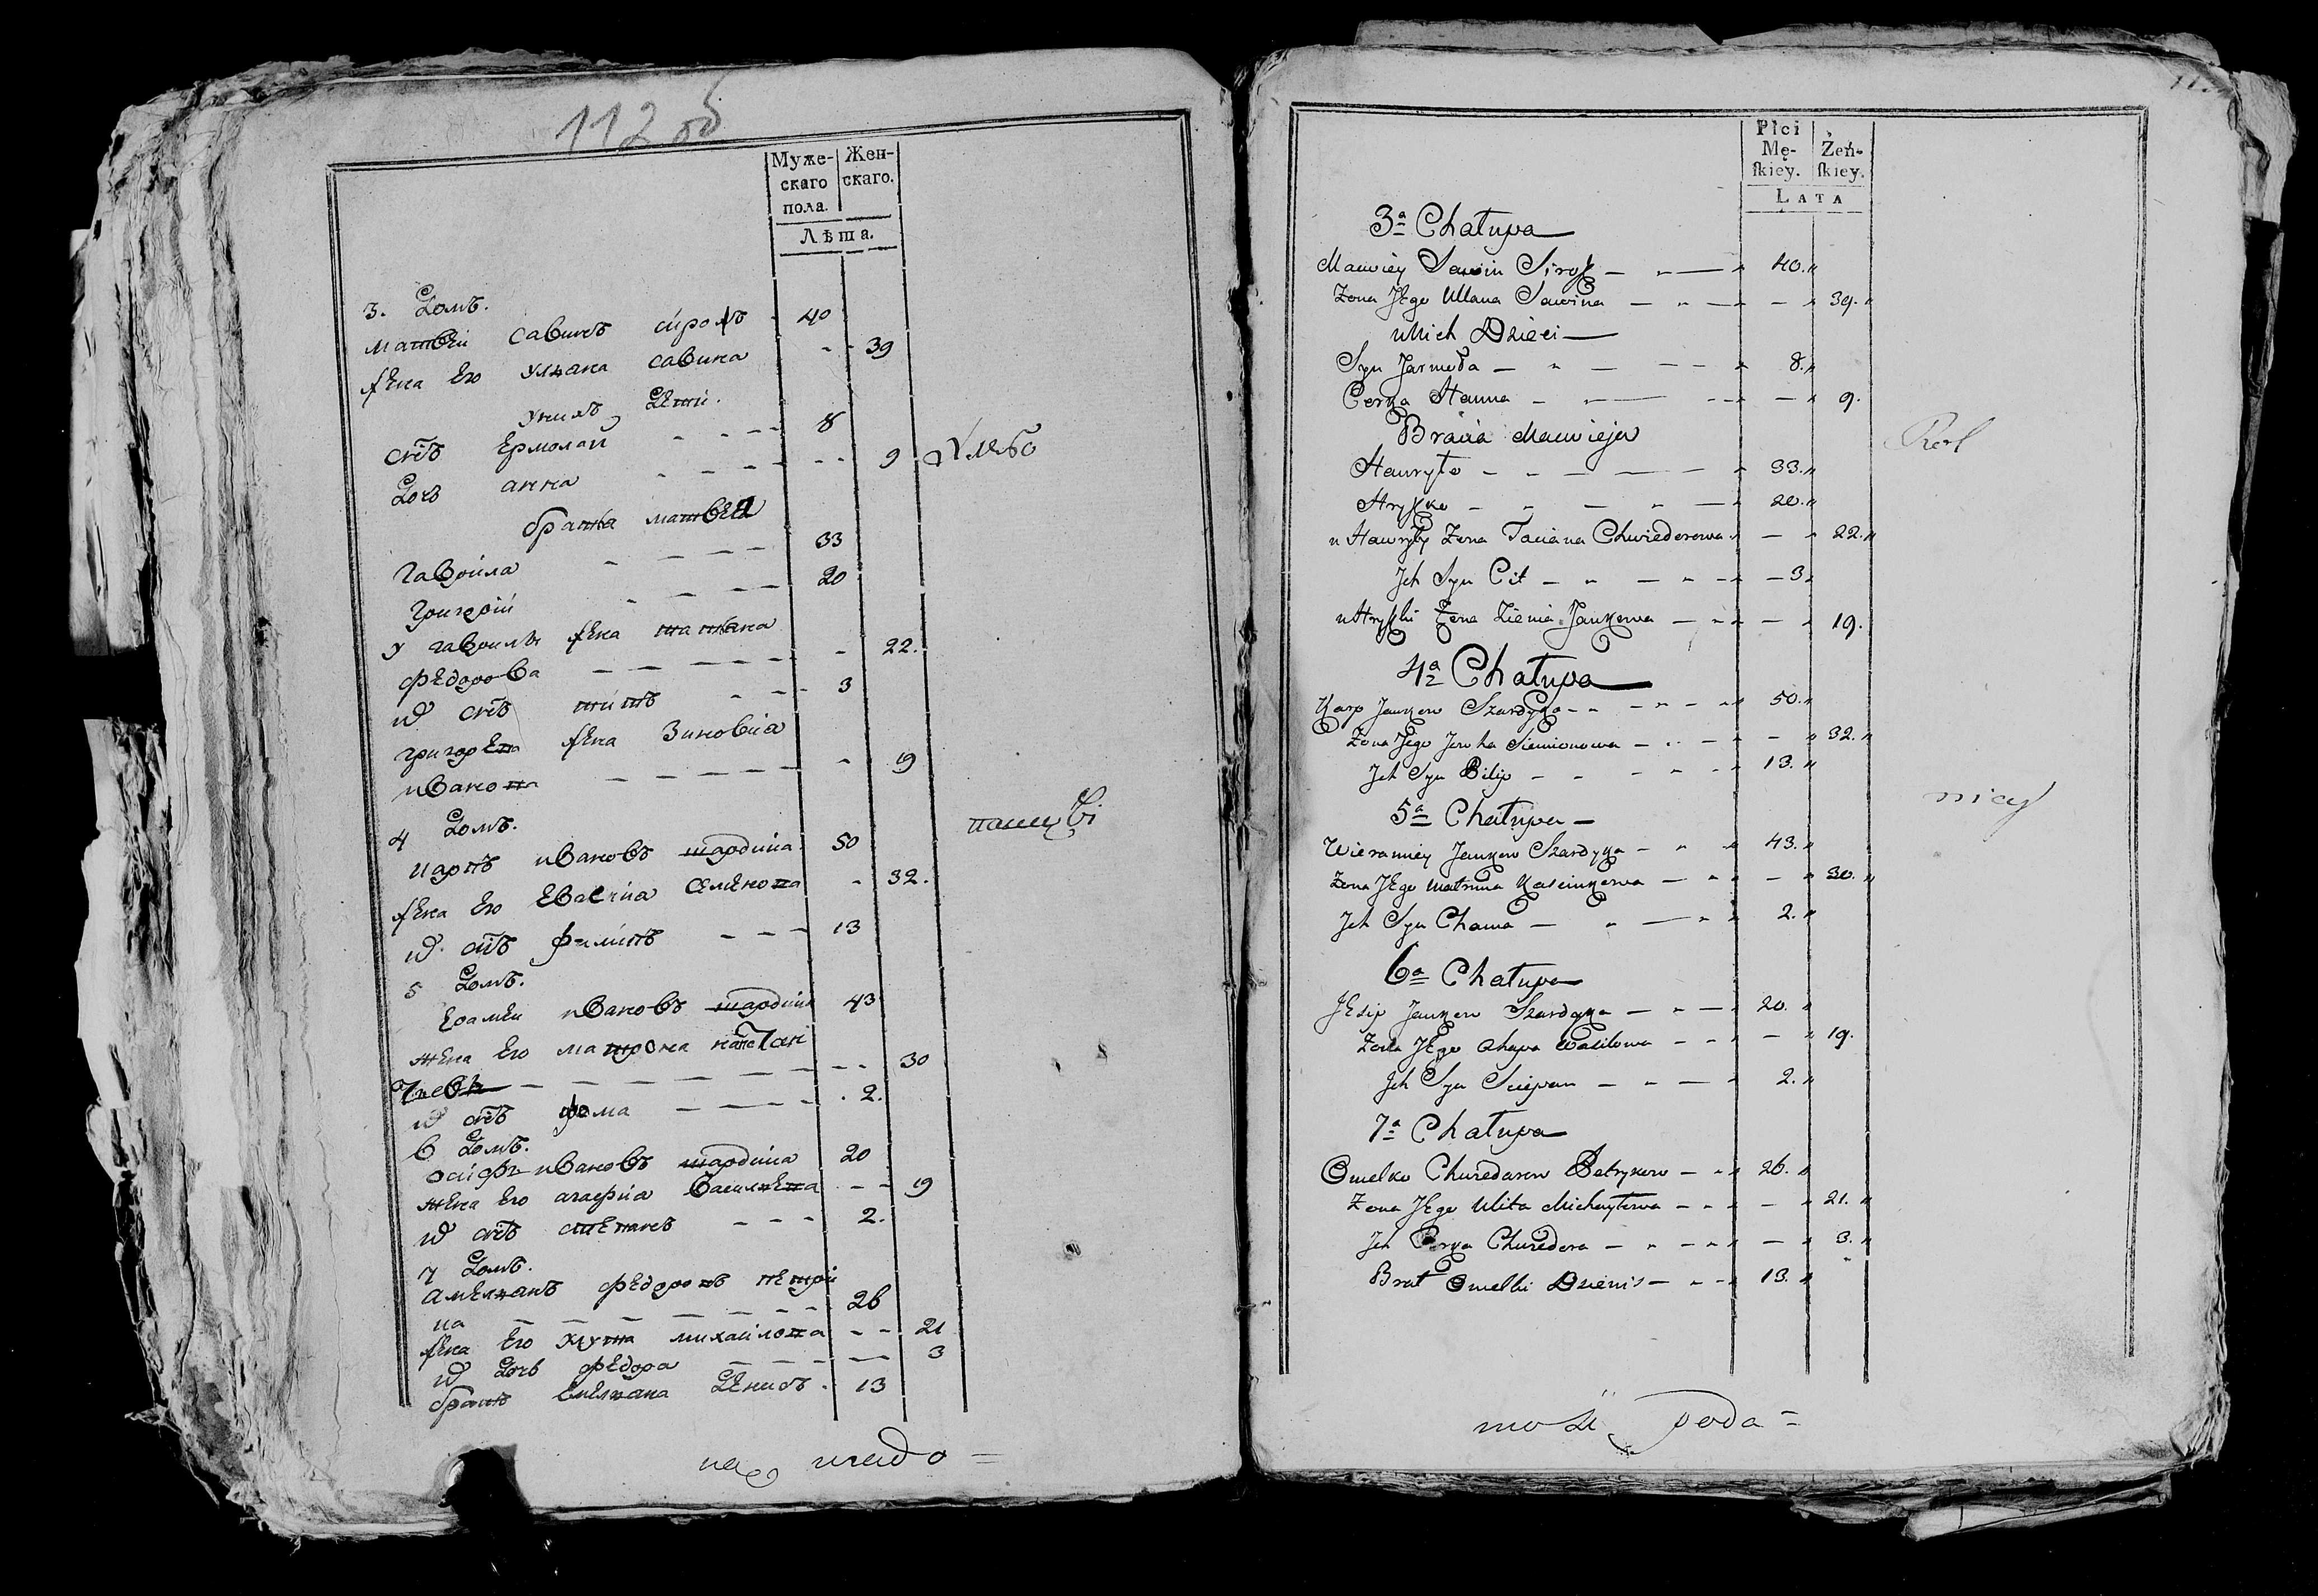 112 об
Муже- Жен-
скаго скаго.
пола.
Лѣта.
3. Домъ.
Матвѣй Савинъ Сірож 40
жена Его Ульяна Савина 39
у них Дети.
снъ Ермолай 8
Дочь анна 9 Хлебо
брата матвея
гаврила 33
григорій 20
у гаврилы жена татьяна
федорова 22.
их снъ титъ 3
григорева жена Зиновіа
иванова 19
4 Домъ.
карпъ ивановъ шардика 50
жена Его Евгенія Семенова 32.
их снъ филипъ 13
5 Домъ.
Еремей ивановъ шардика 43
жена Его матрона
30
их снъ фома 2.
6 Домъ.
осифъ ивановъ шардика 20
жена Его агафиа Васильева 19
их снъ степанъ 2.
7 Домъ.
амельянъ федоровъ петри
ка 26
жена Его михайлова 21
их дочь федора 3
братъ Емельяна Денисъ 13
Płci
Mę- Zeń-
skiey. skiey.
LATA
3a Chatupa
Maciwiey Sawin Siroż 40.
Zona JEgo Ullana Sawina 39.
u Nich Dzieci
Syn Jarmoła 8.
Corka Hanna 9.
Bracia Maciwieja
Hawryło 33.
Hryszko 20.
u Hawryły Zona Taciana Chwiedorowa 22.
Jch Syn Cit 3
u Hryszki Zona Zienia Jankowa 19.
4a Chatupa
Karp Jankow Szardyka 50.
Zona Jego Jewha Siemionowa 32.
Jch Syn Pilip 13.
5a Chatupa
Wieramiey Jankow Szardyka 43.
Zona JEgo Matruna Kasciukowa 30.
Jch Syn Chama 2.
6a Chatupa
JEsip Jankow Szardyka 20.
Zona JEgo Ahapa Wasilowa 19.
Jch Syn Sciepan 2.
7a Chatupa
Omelko Chwedorow Petrykow 26.
Zona JEgo Ulita Michayłowa 21.
Jch Corka Chwedora 3.
Brat Omelki Dzienis 13.